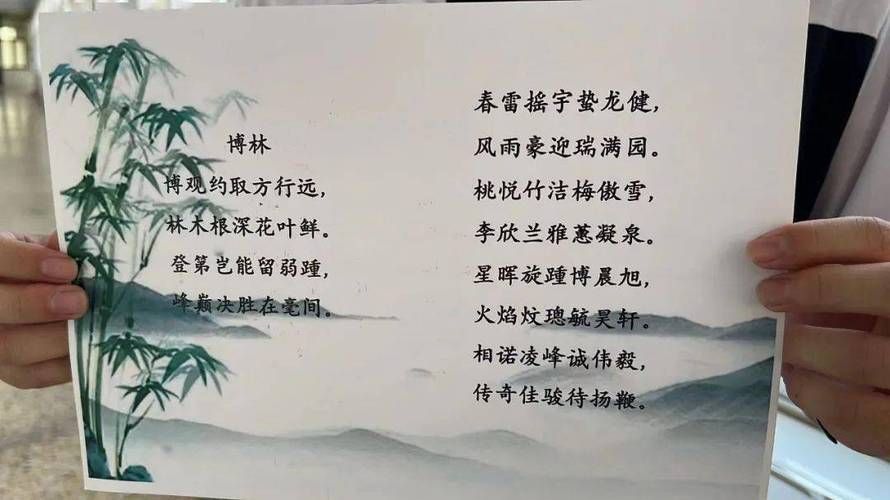 博林
博观约取方行远，
林木根深花叶鲜。
登第岂能留弱踵，
峰巅决胜在毫间。
春雷摇宇蛰龙健，
风雨豪迎瑞满园。
桃悦竹洁梅傲雪，
李欣兰雅蕙凝泉。
星晖旋踵博晨旭，
火焰炆璁毓昊轩。
相诺凌峰诚伟毅，
传奇佳骏待扬鞭。